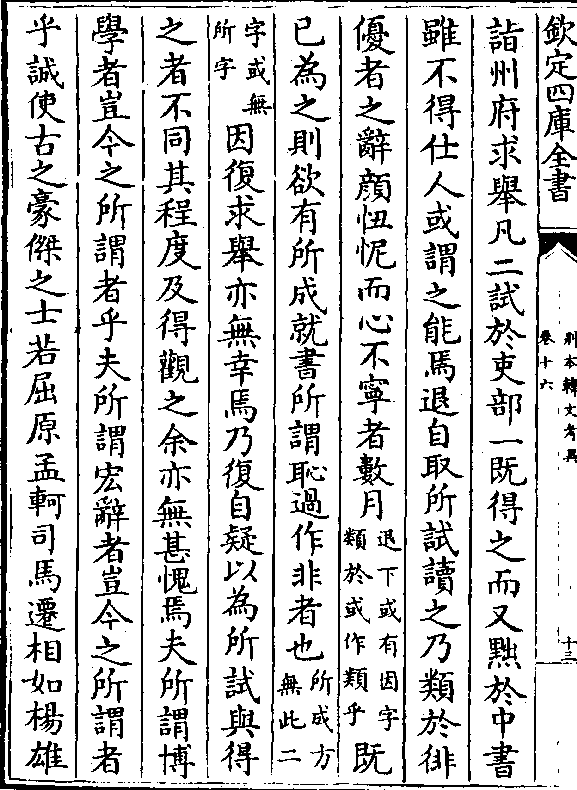 欽定四庫全書
別本韓文考異
卷十六
十三
詣州府求舉凡二試於吏部一既得之而又黜於中書
雖不得仕人或謂之能焉退自取所試讀之乃類於徘
優者之辭顔忸怩而心不寧者數月退下或有因字類於或作類乎既
已為之則欲有所成就書所謂恥過作非者也所成方無此二
字或無所字因復求舉亦無幸焉乃復自疑以為所試與得
之者不同其程度及得觀之余亦無甚愧焉夫所謂博
學者豈今之所謂者乎夫所謂宏辭者豈今之所謂者
乎誠使古之豪傑之士若屈原孟軻司馬遷相如楊雄